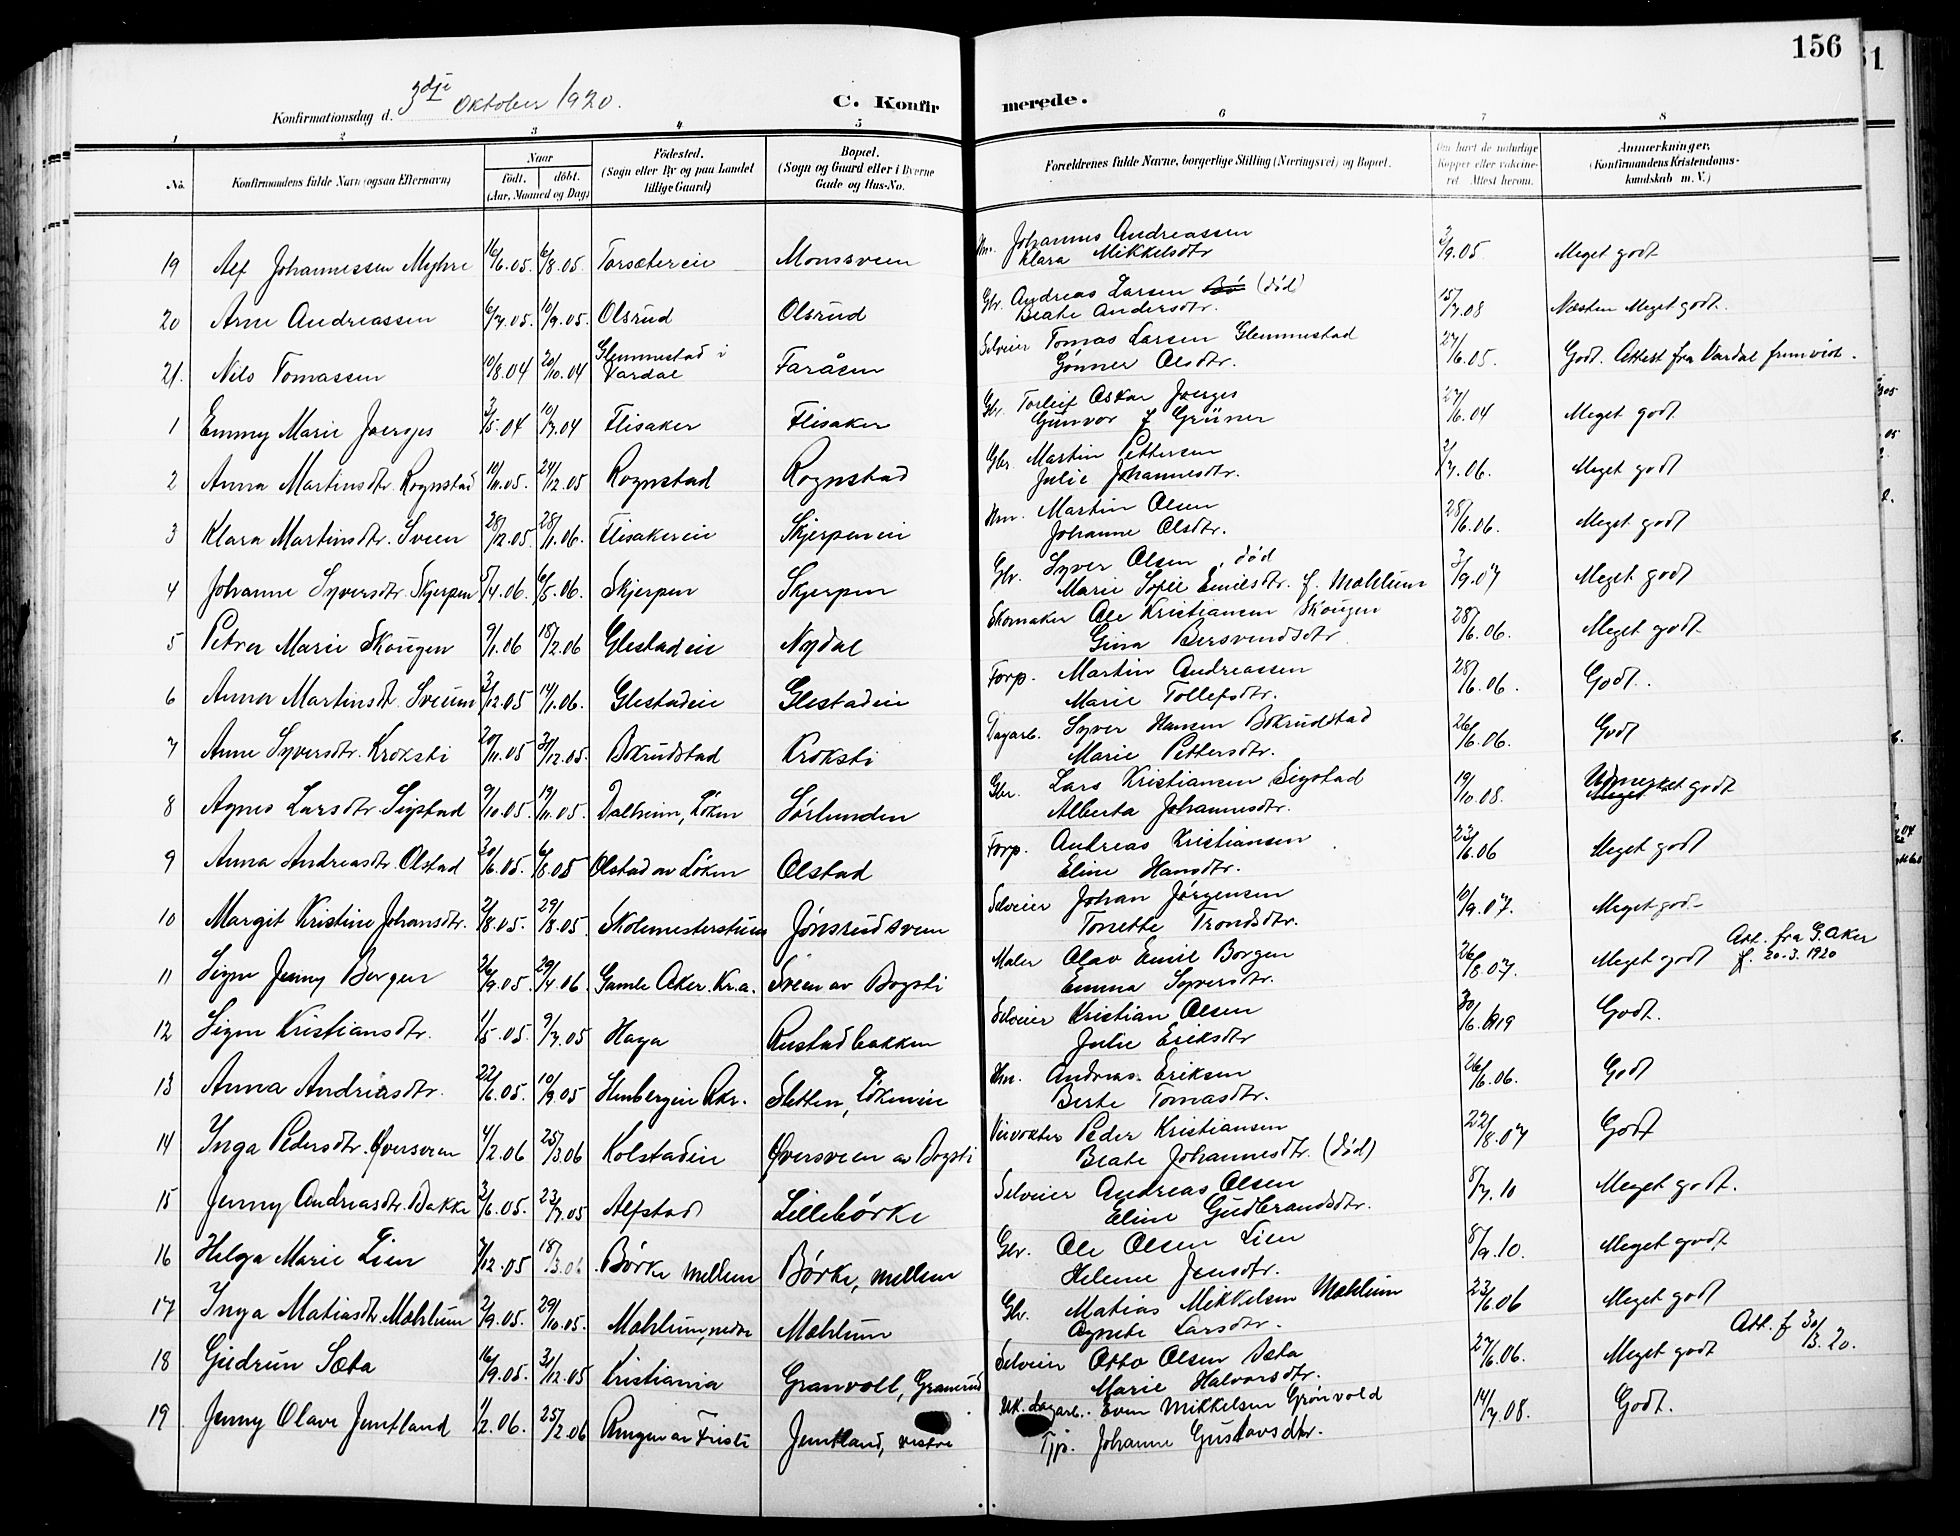 156
Konfirmationsdag d. 3dje Oktober 1920.
C. Konfirmerede.
1 2 3 4 5 6 7 8
No. Konfirmandens fulde Navn (ogsaa Efternavn) Naar født, døbt. (Aar, Maaned og Dag) Fødested. (Sogn eller By og paa Landet tillige Gaard) Bopæl. (Sogn og Gaard eller i Byerne Gade og Hus-No. Forældrenes fulde Navne, borgerlige Stilling (Næringsvei) og Bopæl. Om havt de naturlige Kopper eller vaccineret. Attest herom. Anmærkninger. (Konfirmandens Kristendomskundskab m. V.)
19 Alf Johannessen Myhre 16/6.05. 6/8.05. Torsætereie Monssveen Hm. Johannes Andreassen 2/9.05. Meget godt
Klara Mikkelsdtr
20 Arne Andreassen 6/7.05. 10/9.05. Olsrud Olsrud Gbr. Andreas Larsen (død) 15/7.08 Næsten Meget godt.
Beate Andersdtr.
21. Nils Tomassen 10/8.04 20/10.04 Glemmestad i Vardal Faråsen Selveier Tomas Larsen Glemmestad 27/6.05. Godt. Attest fra Vardal fremvist.
Gønner Olsdtr.
1 Emmy Marie Joerges 3/5.04 10/7.04 Flisaker Flisaker Gbr. Torleif Oskar Joerges 27/6.04 Meget godt.
Gunvor f Grüner
2 Anna Martinsdtr. Rognstad 10/11.05. 24/12.05 Rognstad Rognstad Gbr. Martin Pettersen 2/7.06. Meget godt
Julie Johannesdtr.
3 Klara Martinsdtr. Sveen 28/12.05. 28/1.06. Flisakereie Skjerpeneie Hm. Martin Olsen 28/6.06. Meget godt
Johanne Olsdtr.
4 Johanne Syversdtr. Skjerpen 5/4.06. 6/5.06. Skjerpen Skjerpen Gbr. Syver Olsen, død 3/9.07 Meget godt
Marie Sofie Emilsdtr. f. Mæhlum
5 Petra Marie Skougen 9/1.06 18/2.06 Glestadeie Nydal Skomaker Ole Kristiansen Skougen 28/6.06. Meget godt.
Gina Bersvendsdtr
6 Anna Martinsdt. Sveum 3/12.05 14/1.06. Glestadeie Glestadeie Forp. Martin Andreassen 28/6.06. Godt.
Marie Tollefsdtr.
7 Anne Syversdtr. Kroksti 20/11.05 31/12.05. Bokrudstad Kroksti Dagarb. Syver Hansen Bokrudstad 26/6.06. Godt
Marie Pettersdtr.
8 Agnes Larsdtr. Sigstad 9/10.05. 19/11.05. Dalheim, Løken Sørlunden Gbr. Lars Kristiansen Sigstad 19/10.08. Udmerket godt
Alberta Johannesdtr.
9 Anna Andreasdtr. Olstad 20/6.05. 6/8.05 Olstad av Løken Olstad Forp. Andreas Kristiansen 22/6.06 Meget godt
Eline Hansdtr.
10 Margit Kristine Johansdtr. 2/8.05. 29/8.05. Skolemesterstuen Jønsrudsveen Selveier Johan Jørgensen 10/9.07. Meget godt
Tonette Trondsdtr.
11 Signe Jenny Borgen 26/9.05. 29/4.06. Gamle Aker. Kr.a. Sveen av Bogsti Maler Olav Emil Borgen 26/8.07. Meget godt Att. fra G. Aker f. 20-3.1920
Emma Syversdtr.
12 Signe Kristiansdtr. 1/5.05. 9/7.05 Haga Rustadbakken Selveier Kristian Olsen 30/6.19 Godt.
Julie Eriksdtr
13 Anna Andreasdtr. 22/6.05. 10/9.05 Stenbergeie Rkr. Sletten, Løkeneie Hm. Andreas Eriksen 26/6.06. Godt
Berte Tomasdtr.
14 Inga Pedersdtr. Øversveen 4/2.06 25/3.06 Kolstadeie Øversveen av Bogsti Veivokter Peder Kristiansen 22/8.07 Godt
Beate Johannesdtr. (død)
15 Jenny Andreasdtr. Bakke 3/6.05. 23/7.05 Alfstad Lillebørke Selveier Andreas Olsen 8/7.10 Meget godt.
Eline Gudbrandsdtr.
16 Helga Marie Lien 7/12.05 18/3.06 Børke mellem Børke, mellem Gbr. Ole Olsen Lien 8/9.10. Meget godt
Helene Jensdtr.
17 Inga Matiasdtr. Mæhlum 2/9.05. 29/10.05. Mæhlum, nedre Mæhlum Gbr. Matias Mikkelsen Mæhlum 23/6.06 Meget godt
Agnete Larsdtr.
18 Gudrun Sæta 16/9.05. 31/12.05 Kristiania Granvoll, Gramrud Selveier Otto Olsen Sæta 27/6.06. Meget godt Att. f 30/3.20.
Marie Halvorsdtr.
19. Jenny Olava Jemtland 1/2.06. 25/2.06 Ringen av Fristi Jemtland, vestre Uk. dagarb. Even Mikkelsen Grønvold 14/7.08. Godt.
Tjp. Johanne Gustavsdtr.